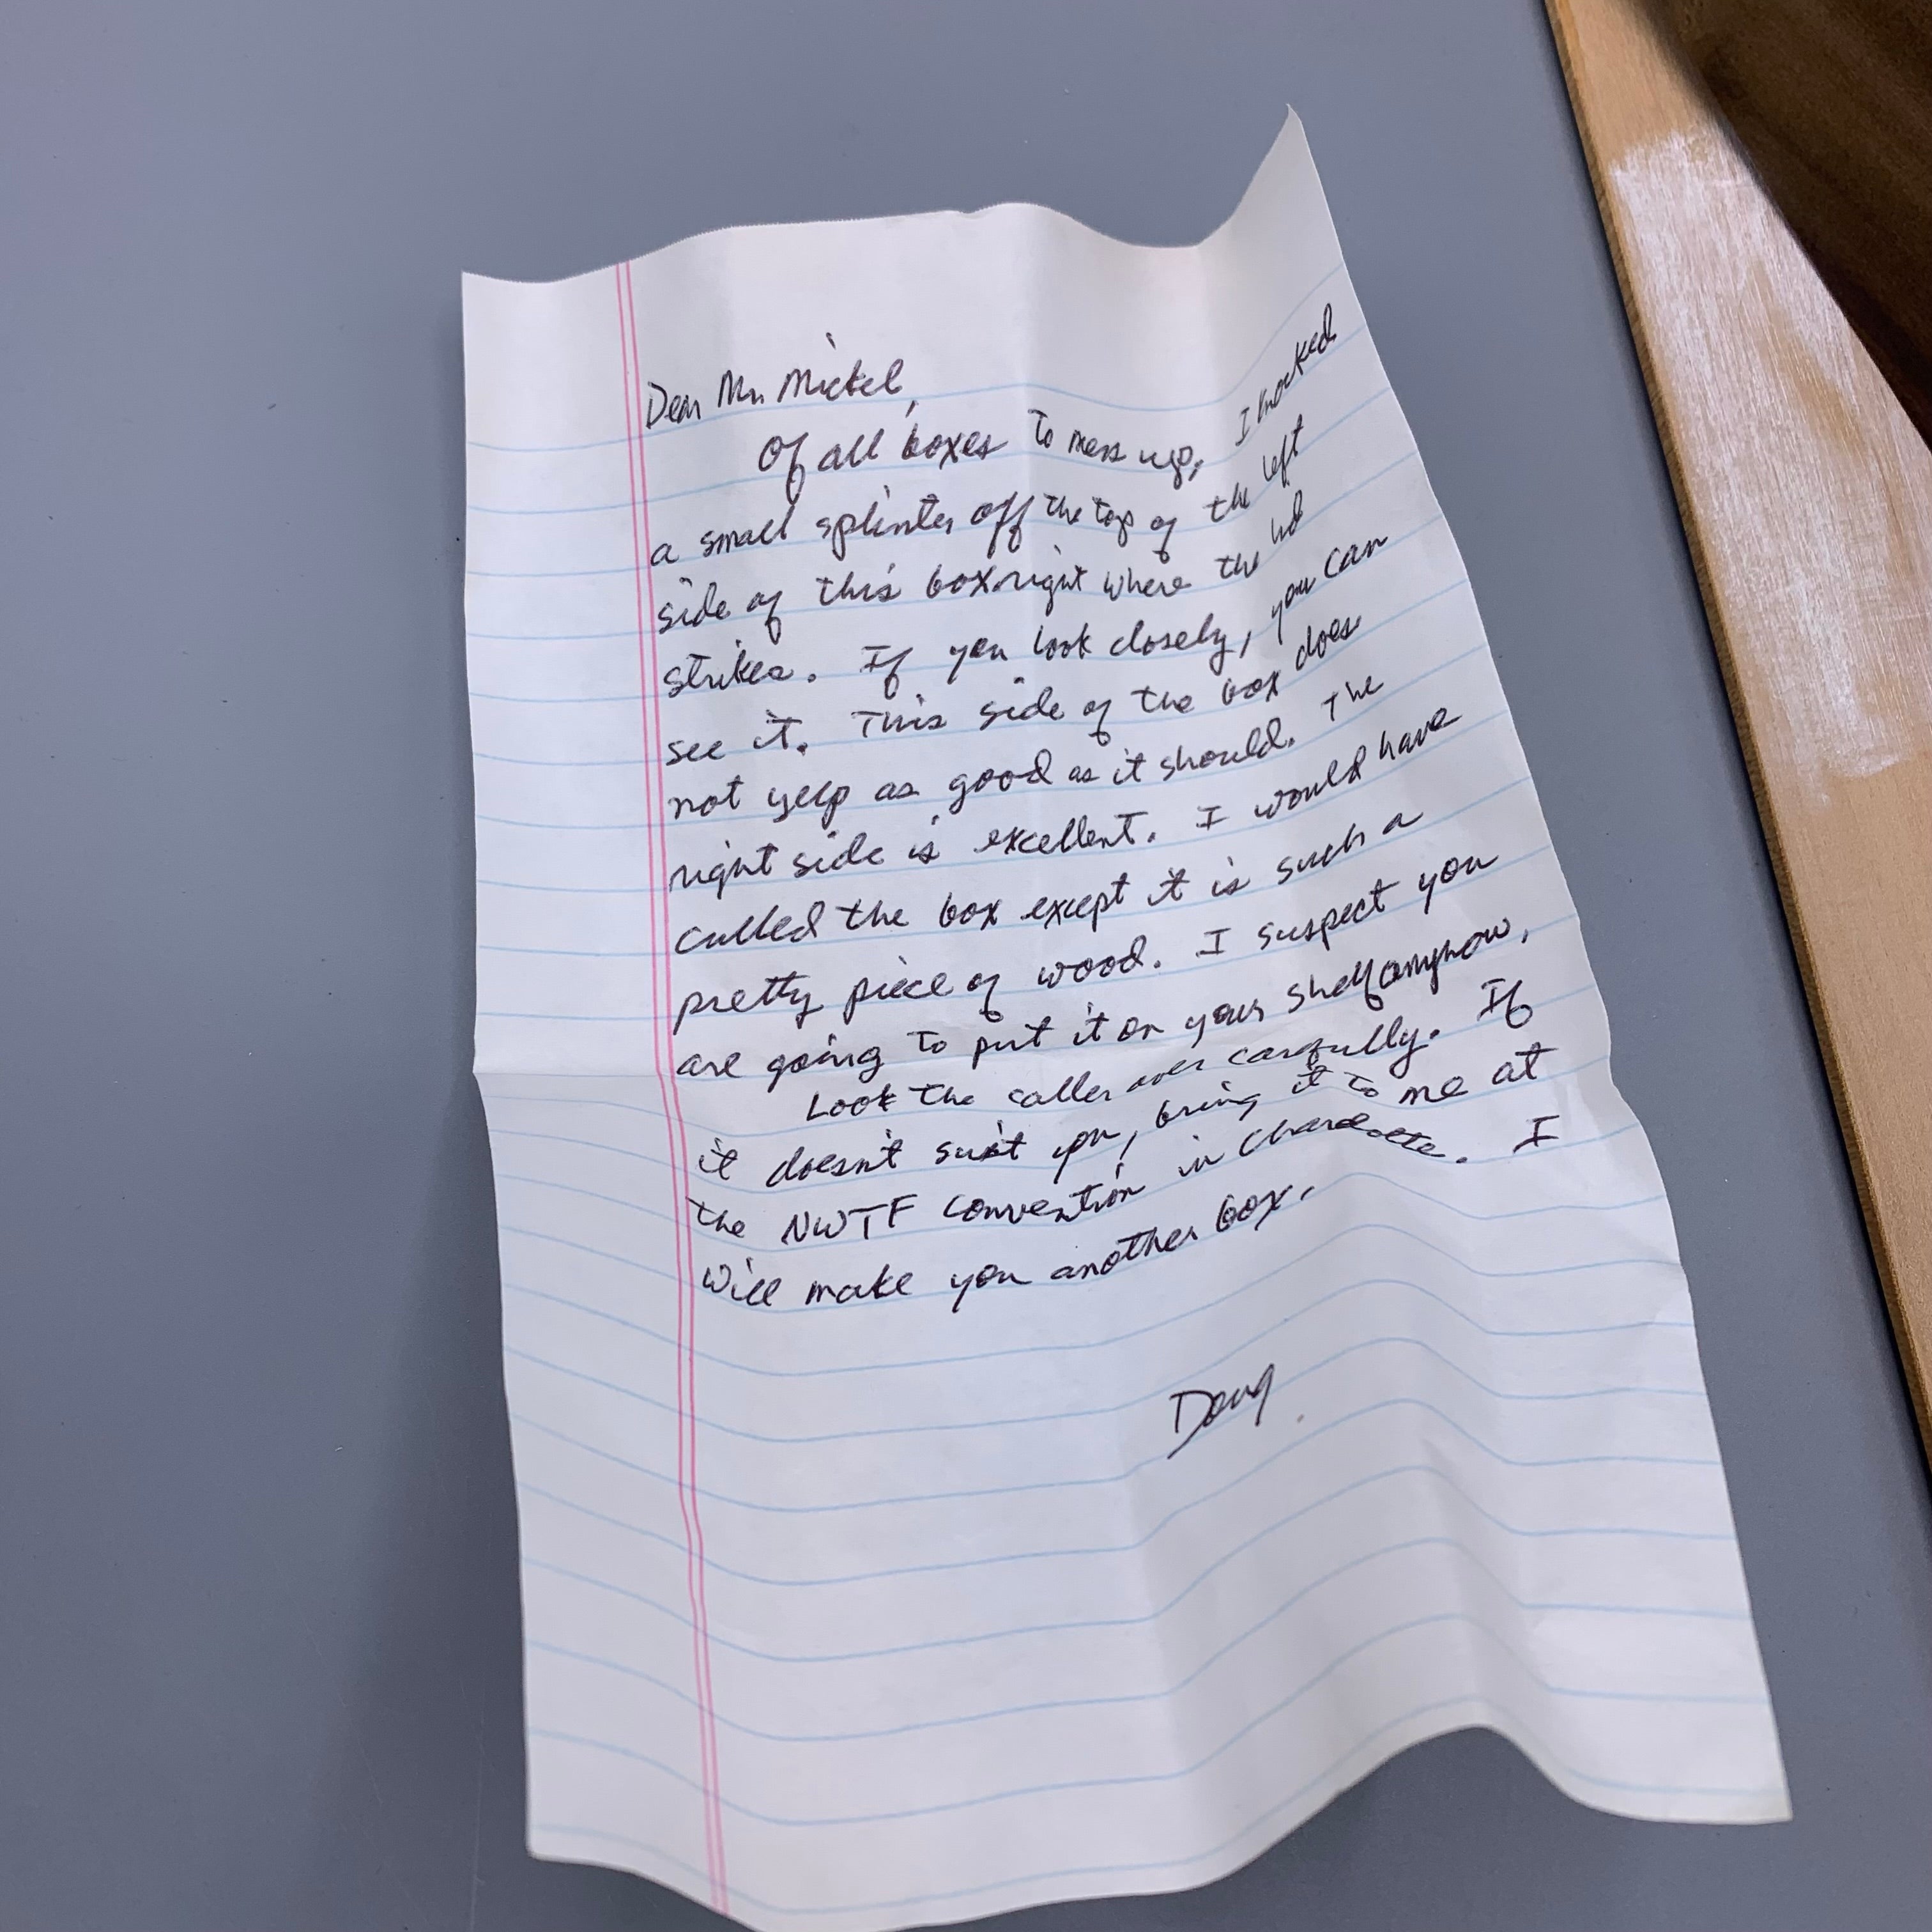 Dear Mr. Mickel,
Of all boxes to mess up, I knocked
a small splinter off the top of the left
side of this box right where the lid
strikes. If you look closely, you can
see it. This side of the box does
not yelp as good as it should. The
right side is excellent. I would have
culled the box except it is such a
pretty piece of wood. I suspect you
are going to put it on your shelf anyhow.
Look the caller over carefully. If
it doesn't suit you, bring it to me at
the NWTF convention in Charlotte. I
will make you another box.
Doug